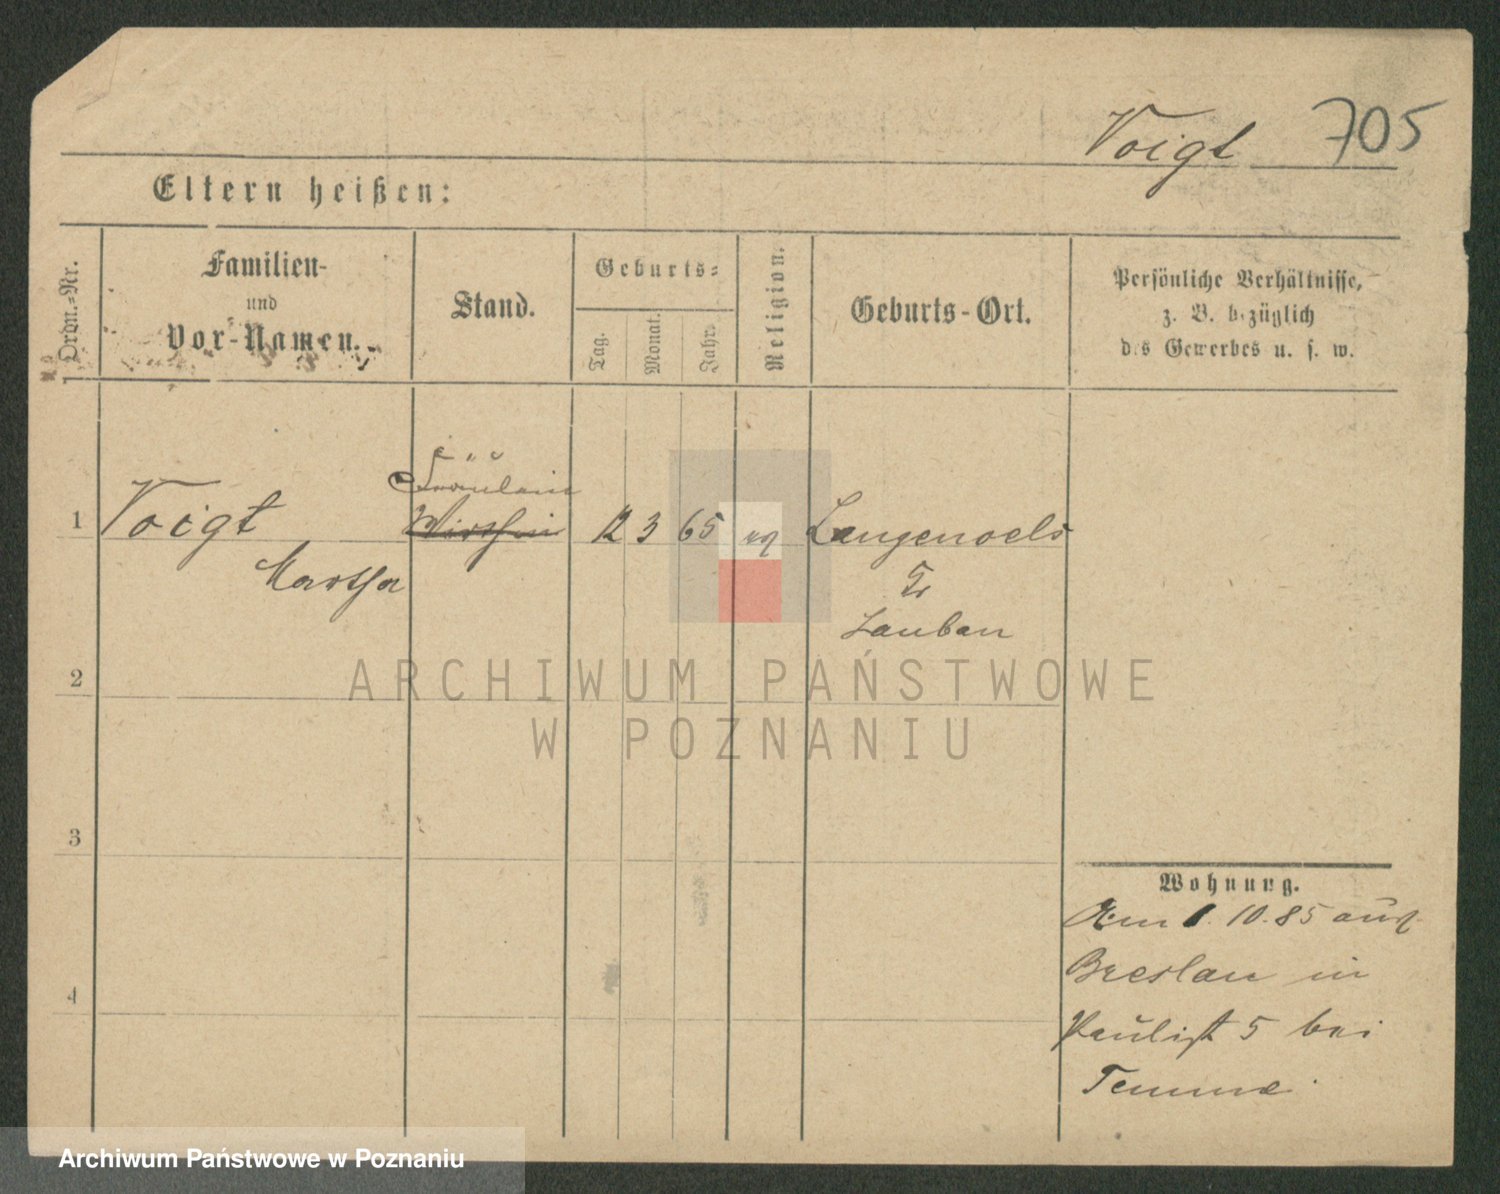 Voigt 705
Eltern heißen:
Ordn.-Nr.
Familien-
und
Vor-Namen.
Stand.
Geburts-
Tag.
Monat.
Jahr.
Religion.
Geburts-Ort.
Persönliche Verhältnisse,
z. B. bezüglich
des Gewerbes u. s. w.
1 Voigt
Martha
Fräulein
Wirthin
12 3 65 ev Langenoels
Kr
Lauban
2
3
4
Wohnung.
Am 1. 10. 85 aus
Breslau in
Paulist 5 bei
Temme.
ARCHIWUM PAŃSTWOWE
W POZNANIU
Archiwum Państwowe w Poznaniu